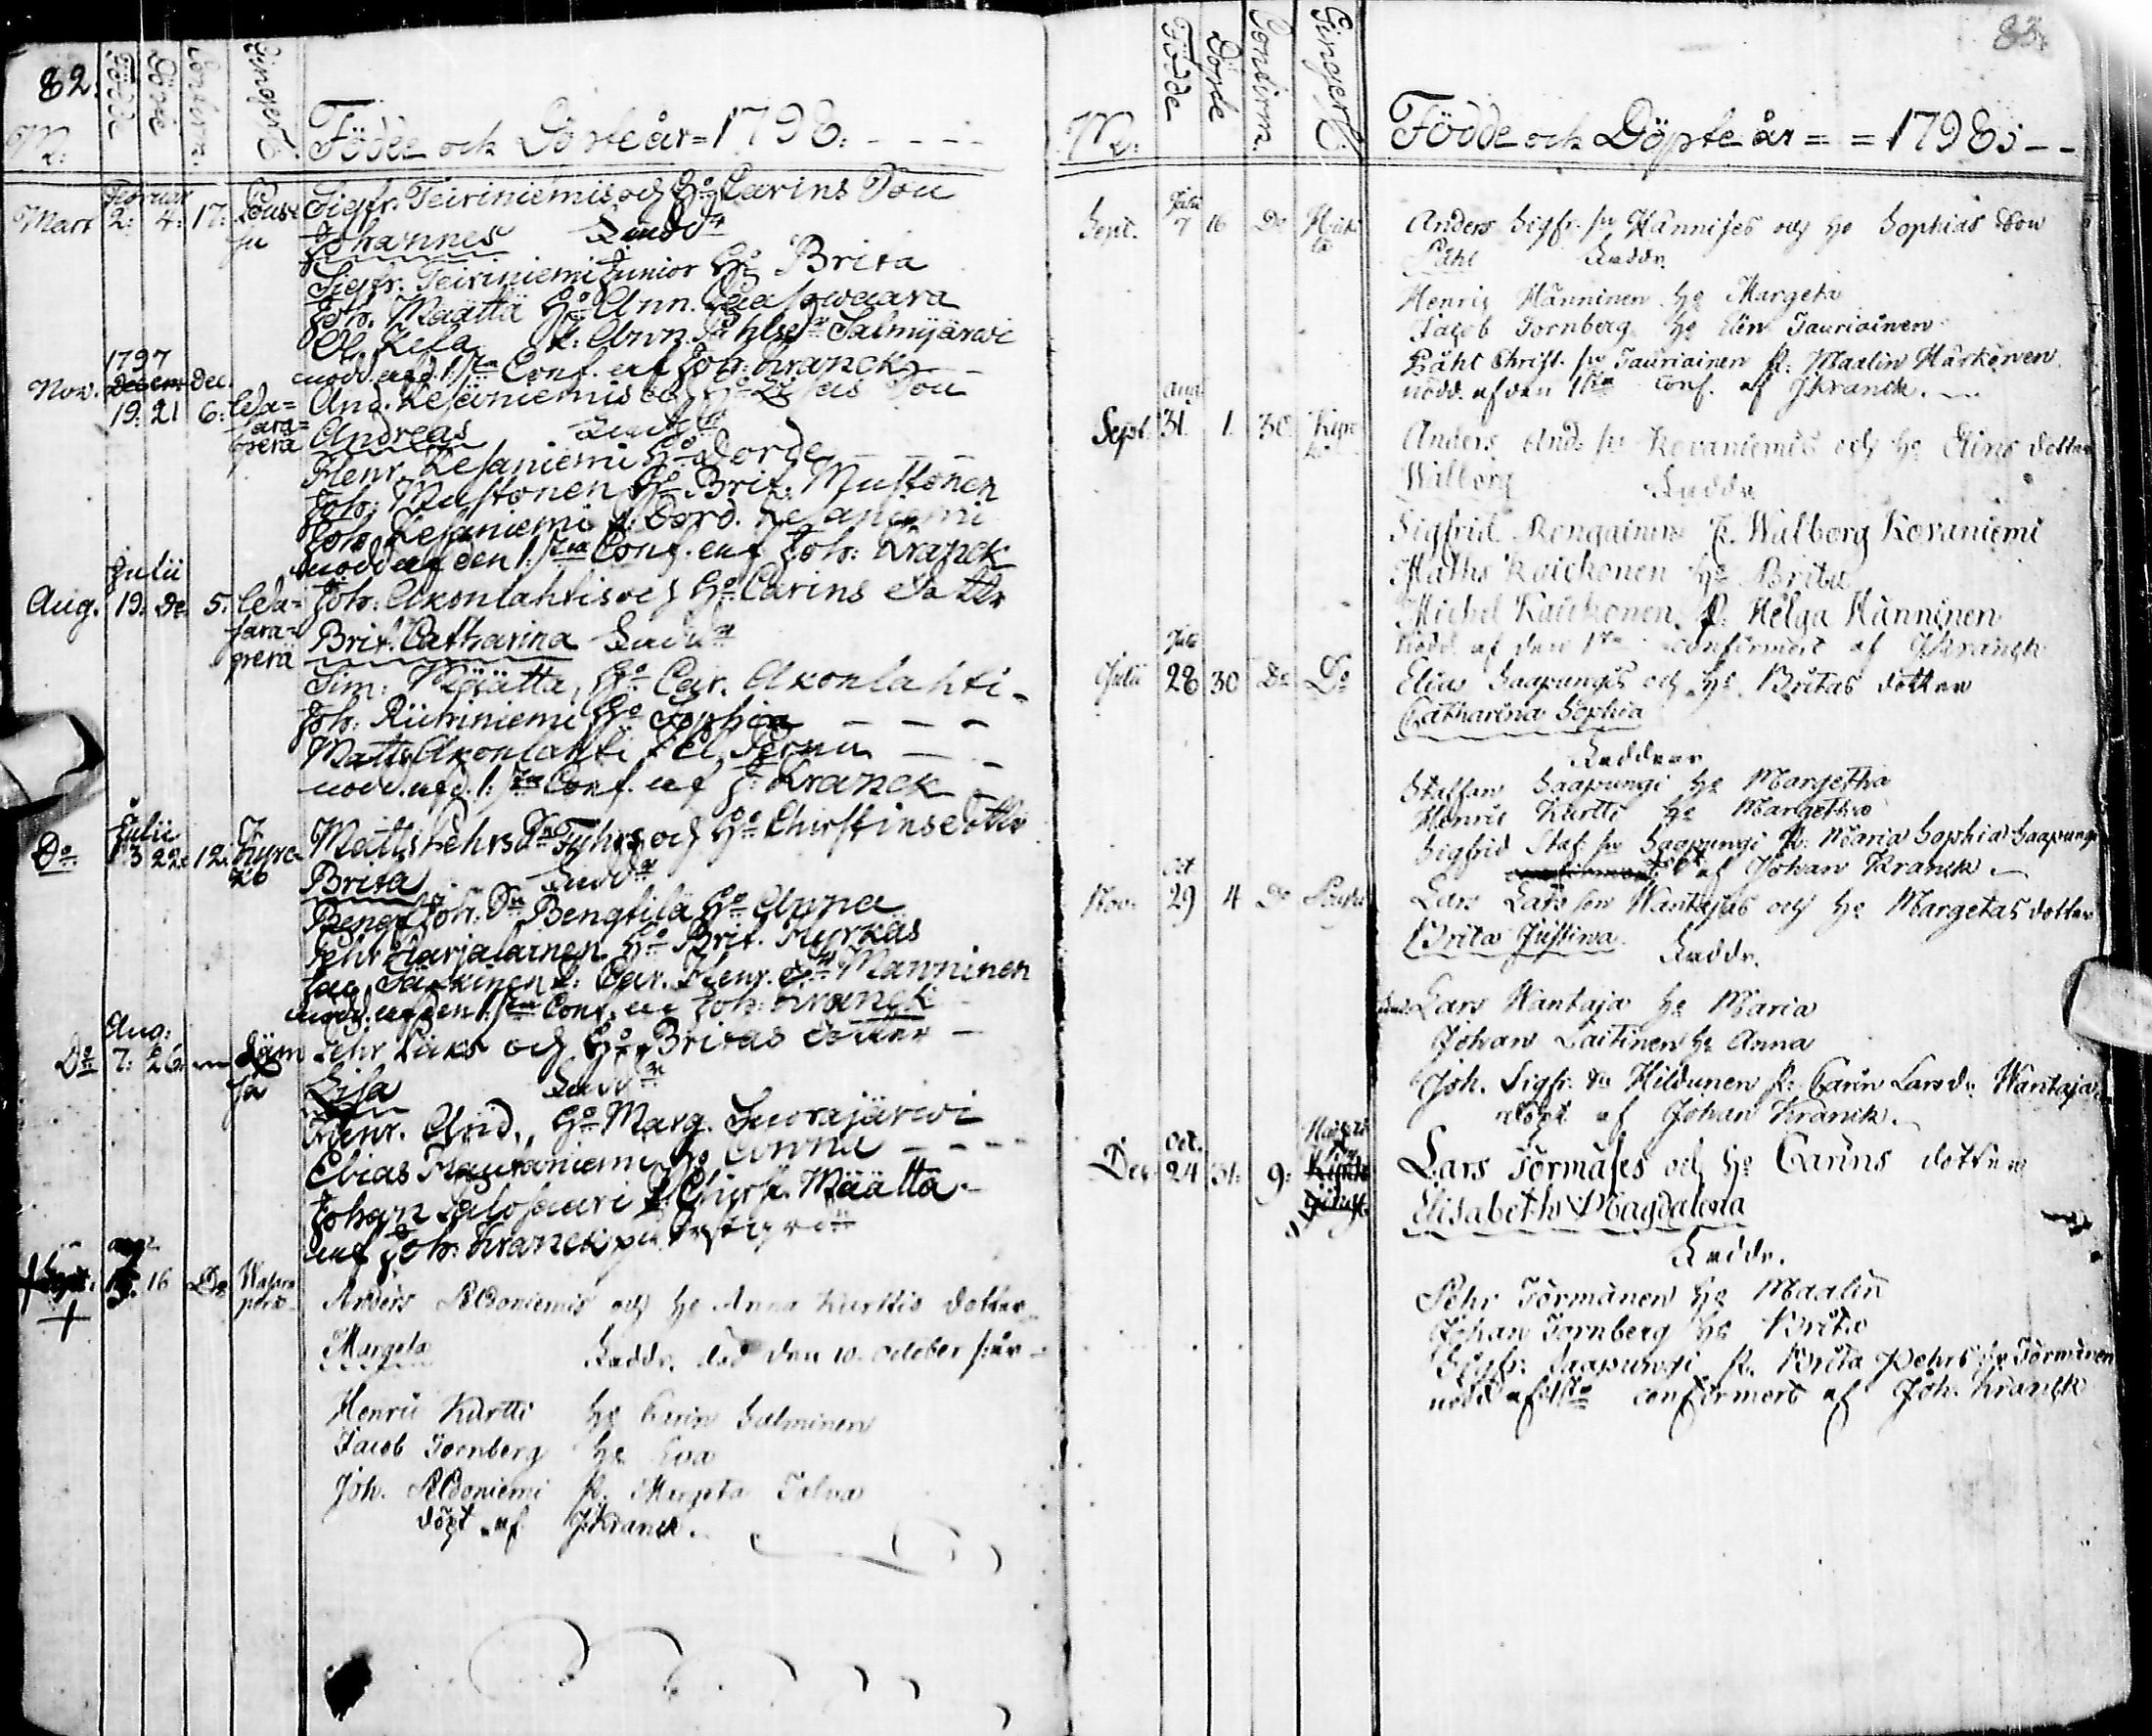 82.
Födde
Döpte
Confirm:
Gingerb.
M:
Födde och Döpte år = 1798. - - - -
Februar
Mart 2: 4: 17: Sigfr. Teiriniemis och Ho Carins Son
Johannes Faddr
Sigfr. Teiriniemi Junior Ho Brita
Joh. Määttä Ho Ann.
Ol. Kesä P: Ann. Påhlsdr Salmijärwi
nödd. af d. 1sta Conf. af Joh: Kranck
1797
Nov. Decem Dec.
19. 21 6: Wasaraperä And. Kesäniemis och Ho Lisas Son
Andreas Faddr
Henr. Kesäniemi Ho Dorde - - -
Joh: Mustonen Ho Brit: Mustonen
Joh. Kesäniemi P: Dord. Kesäniemi
nödd af den 1sta Conf. af Joh: Kranck
Julii
Aug. 19: Do 5: Wasaraperä Joh: Akonlahtis och Ho Carins dotter
Brit. Catharina Faddr
Sim: Määttä, Ho Car. Akonlahti -
Joh: Riihiniemi Ho Sophia - - -
Matts Akonlahti P El. Pernu - -
nödd. af d. 1sta Conf. af J: Kranck
Julii
Do 13 22: 12: Matts Pehrs Sn Tyhys och Ho Chirstins dotter
Brita Faddr
Bengt Joh. Sn Bengtilä Ho Anna
Pehr Karjalainen Ho Brit. Hyrkäs
Jac. Särkinen P: Car. Henr. dr Manninen
nödd. af den 1sta Conf. af Joh: Kranck
Aug:
Do 7: 26: Pehr Liikas och Ho Britas dotter -
Lisa Faddr
Henr. And., Ho Marg. Suorajärwi
Elias Hautaniemi Ho Anna - - - -
Johan Palosaari P: Chirst. Määttä -
af Joh: Kranck
aug
Sept. 15. 16 Do Wasaraperä Anders Aldoniemis och Ho Anna Kurttis dotter
Margeta Faddr. död den 10. October s: år -
Henric Kurtti Ho Karin Salminen
Jacob Tornberg Ho Eva
Joh. Aldoniemi P. Margeta Talva
döpt af JKranck.
83.
Födde
Döpte
Confirm.
Gingerb.
M:
Födde och Döpte år = = 1798 - -
Julii
Sept. 7 16 Do Anders Sigfr. sn Hännises och Ho Sophias Son
Påhl Faddr.
Henric Hänninen Ho Margeta
Jacob Tornberg Ho Elin Tauriainen
Påhl Christ. sn Tauriainen P. Maalin Härkönen
nödd. af den 1sta conf. af JKranck. -
Aug
Sept. 31. 1. 30. Anders And. sn Kovaniemis och Ho Elins dotter
Walborg Faddr.
Sigfrid Rengainen P. Walborg Kovaniemi
Maths Kaickonen Ho Brita
Michel Kaickonen P: Helga Hänninen
nödd. af den 1sta confirmert af JKranck
Julii
Julii 28 30 Do Do Elias Saapungis och Ho Britas dotter
Catharina Sophia
Faddrar
Staffan Saapungi Ho Margetha
Henric Kurtti Ho Margetha
Sigfrid Staf. sn Saapungi P. Maria Sophia Saapungi
af Johan Kranck -
Oct
Nov. 29 4 Do Lars Lars son Wantajas och Ho Margetas dotter
Brita Justina Faddr.
Lars Wantaja Ho Maria
Johan Laitinen Ho Anna
Joh. Sigfr. sn Hildunen P: Carin Lars dr Wantaja
döpt af Johan Kranck.
Oct.
Dec. 24 31. 9: Lars Törmäses och Ho Carins dotter
Elisabeth Magdalena
Faddr.
Pehr Törmänen Ho Maalin
Johan Tornberg Ho Brita
Sigfr. Saapungi P. Brita Pehrs dr Törmänen
nödd af 1sta confirmert af Joh. Kranck